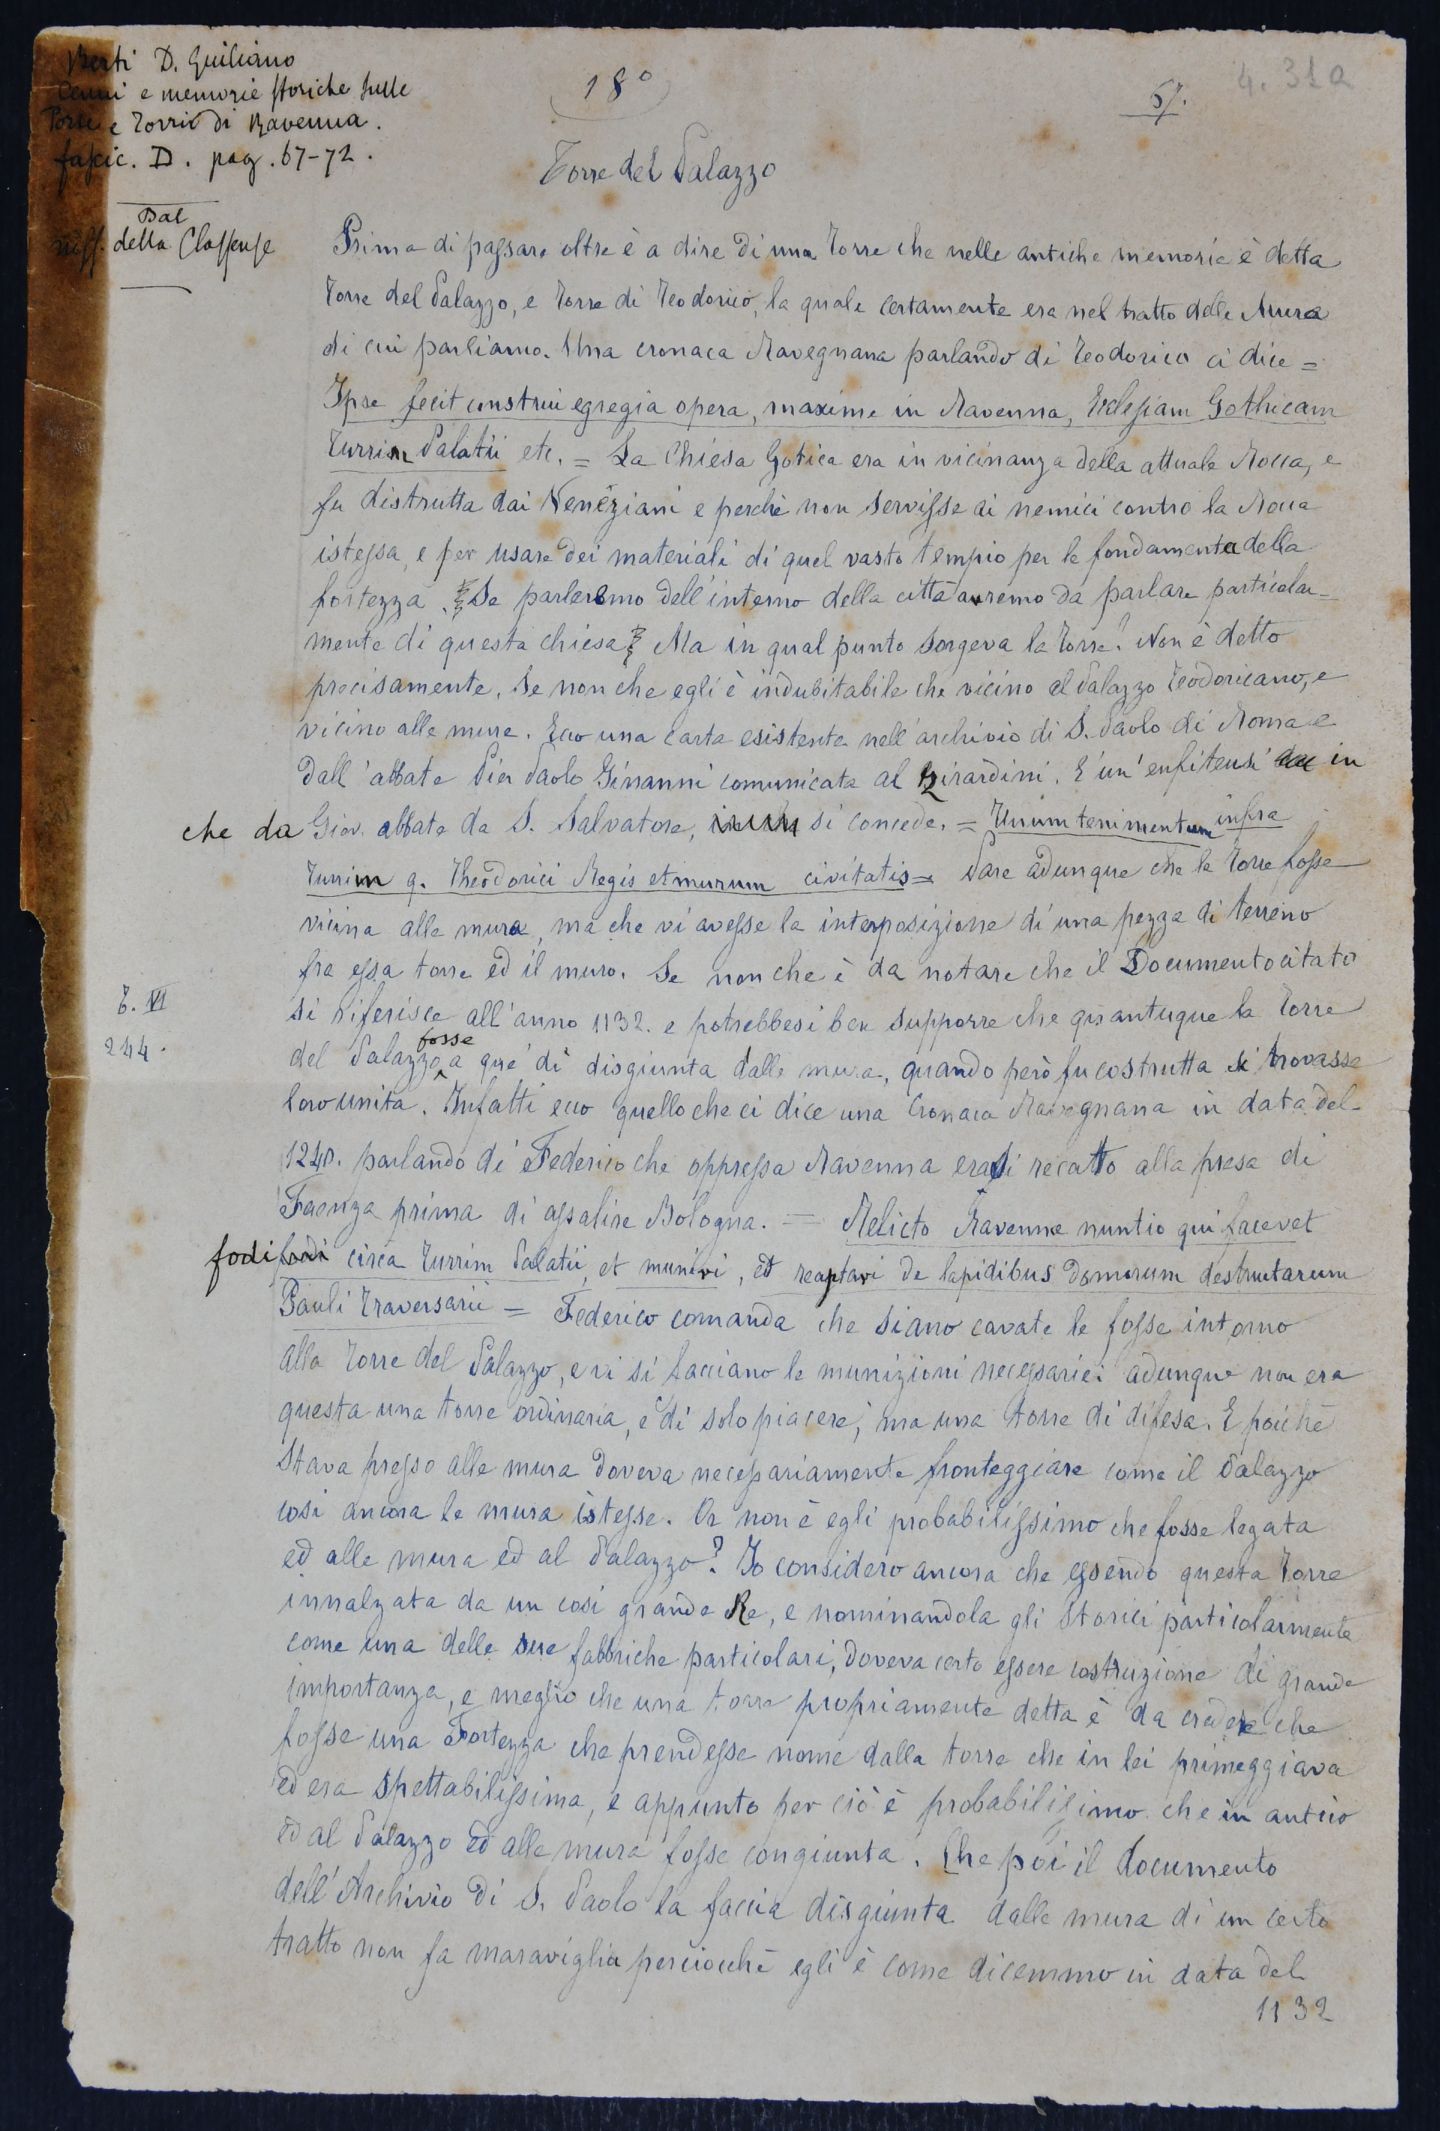 Berti D. Guiliano
Cenni e memorie storiche sulle
Porte e Torri di Ravenna.
fascic. D. pag. 67-72.
Dal
mss. della Classense
18°
67.
4. 31a
Torre del Palazzo
Prima di passare oltre è a dire di una Torre che nelle antiche memorie è detta
Torre del Palazzo, e Torre di Teodorico, la quale certamente era nel tratto delle Mura
di cui parliamo. Una cronaca Ravegnana parlando di Teodorico ci dice =
Ipse fecit construi egregia opera, maxime in Ravenna, Ecclesiam Gothicam
Turrim Palatii etc. = La Chiesa Gotica era in vicinanza della attuale Rocca, e
fu distrutta dai Veneziani e perchè non servisse ai nemici contro la Rocca
istessa, e per usare dei materiali di quel vasto tempio per le fondamenta della
fortezza. Se parleremo dell'interno della città avremo da parlare particolar-
mente di questa chiesa. Ma in qual punto sorgeva la Torre? Non è detto
precisamente, se non che egli è indubitabile che vicino al Palazzo Teodoricano, e
vicino alle mura. Ecco una carta esistente nell'archivio di S. Paolo di Roma e
dall'abbate Pier Paolo Ginanni comunicata al Zirardini. E' un' enfiteusi in
che da Giov. abbate da S. Salvatore, si concede. = Unum tenimentum infra
Turrim q. Theodorici Regis et murum civitatis = Pare adunque che la Torre fosse
vicina alle mura, ma che vi avesse la interposizione di una pezza di terreno
fra essa torre ed il muro. Se non che è da notare che il Documento citato
T. VI
244.
si riferisce all'anno 1132. e potrebbesi ben supporre che quantuque la Torre
del Palazzo fosse a que' dì disgiunta dalle mura, quando però fu costrutta si trovasse
loro unita. Infatti ecco quello che ci dice una Cronaca Ravegnana in data del
1240. parlando di Federico che oppressa Ravenna erasi recatto alla presa di
Faenza prima di assalire Bologna. = Relicto Ravenne nuntio qui facevet
fodi circa Turrim Palatii, et muniri, et reaptari de lapidibus domorum destructarum
Pauli Traversarii = Federico comanda che siano cavate le fosse intorno
alla Torre del Palazzo, e vi si facciano le munizioni necessarie; adunque non era
questa una torre ordinaria, e di solo piacere, ma una torre di difesa. E poichè
stava presso alle mura doveva necessariamente fronteggiare come il Palazzo
così ancora le mura istesse. Or non è egli probabilissimo che fosse legata
ed alle mura ed al Palazzo? Io considero ancora che essendo questa Torre
innalzata da un così grande Re, e nominandola gli Storici particolarmente
come una delle sue fabbriche particolari, doveva certo essere costruzione di grande
importanza, e meglio che una torre propriamente detta è da credere che
fosse una Fortezza che prendesse nome dalla torre che in lei primeggiava
ed era spettabilissima, e appunto per ciò è probabilissimo che in antico
ed al Palazzo ed alle mura fosse congiunta. Che poi il documento
dell'Archivio di S. Paolo la faccia disgiunta dalle mura di un certo
tratto non fa maraviglia perciocchè egli è come dicemmo in data del
1132